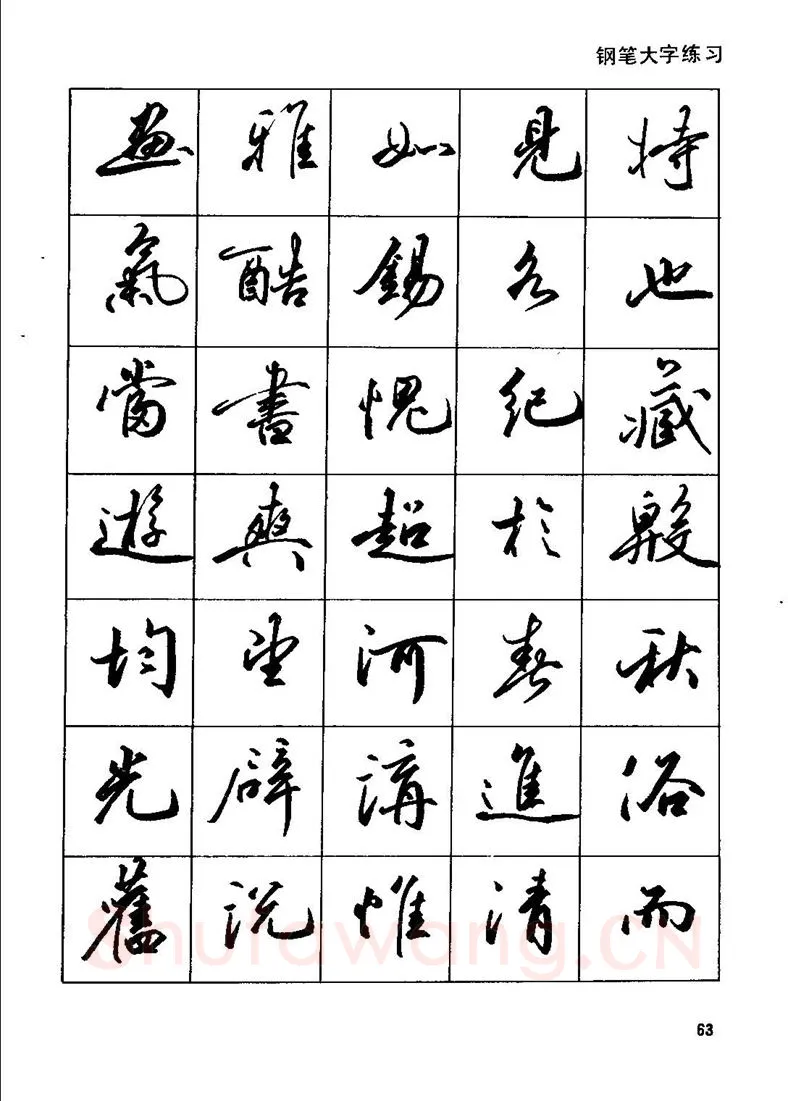 钢笔大字练习
畫 雅 如 見 特
氣 酷 錫 名 也
當 書 愧 紀 藏
遊 爽 超 於
均 望 河 春 秋
光 辟 講 進 俗
舊 説 惟 清 而
Shufawang.CN
63